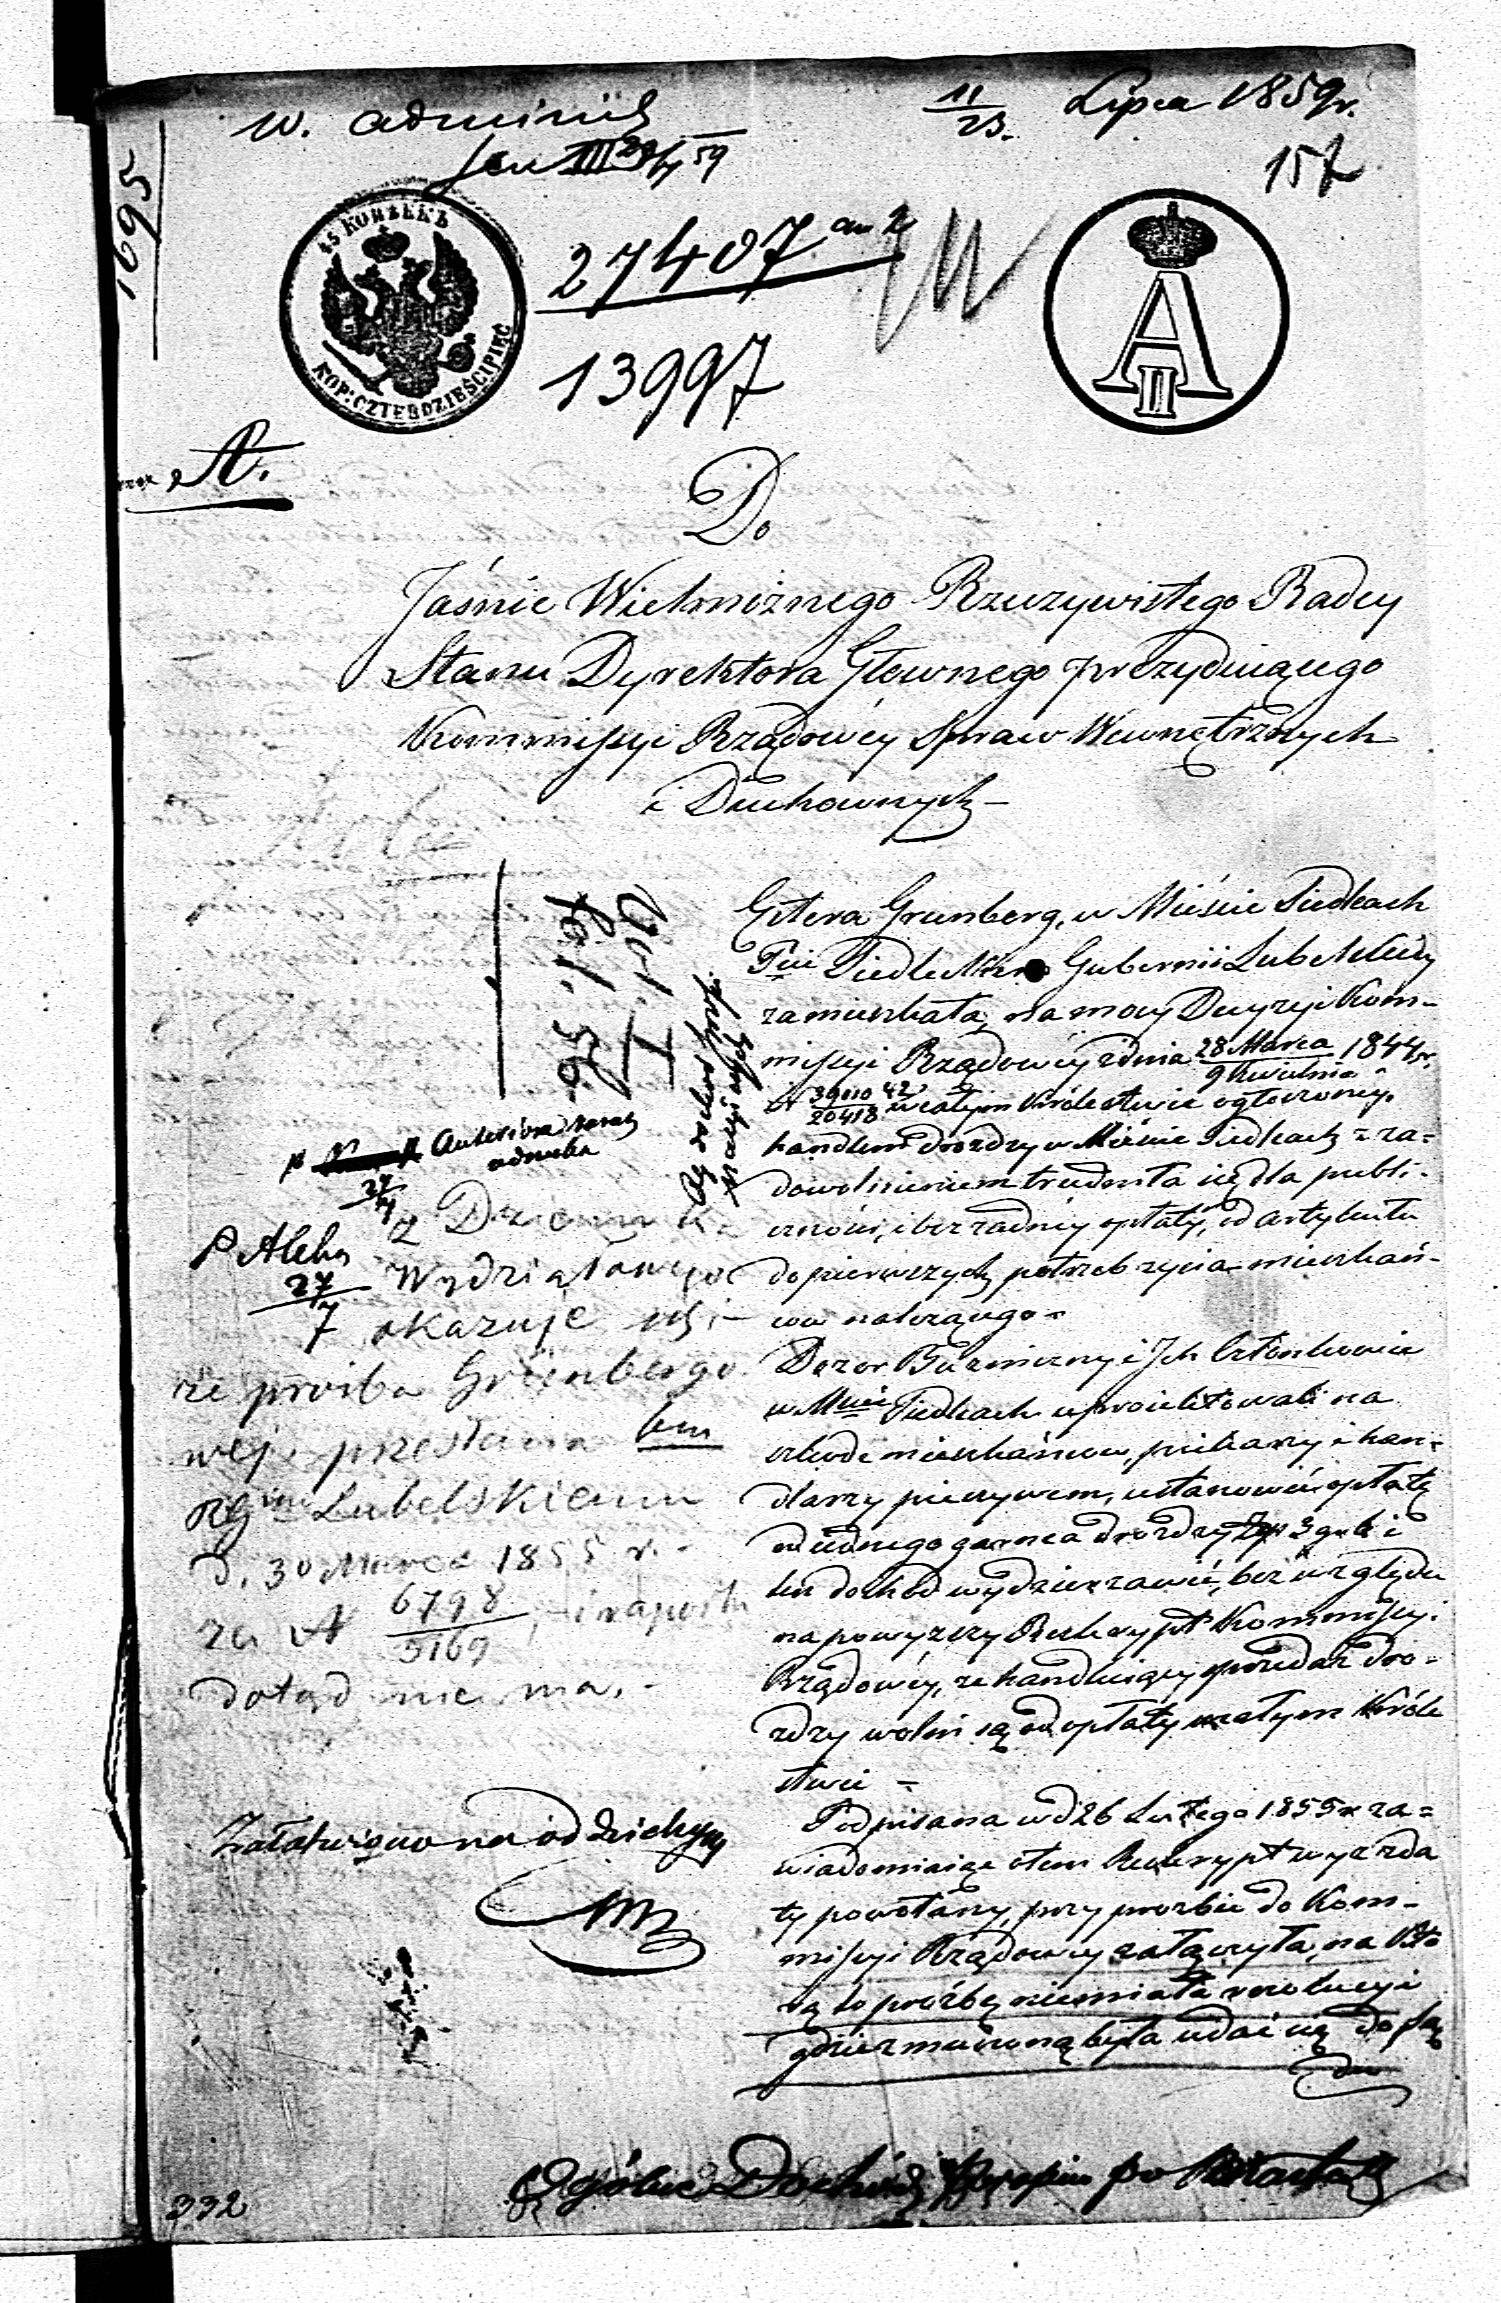 W. administ
11/23. Lipca 1859r.
157
1695
45 KOPѢEKЪ
KOP: CZTERDZIEŚCI PIĘĆ
27407
13997
A II
A.
Do
Jaśnie Wielmożnego Rzeczywistego Radcy
Stanu Dyrektora Głownego prezyduiącego
Kommissyi Rządowéy Spraw Wewnętrznych
i Duchownych
Estera Grunberg, w Mieście Siedlcach
Ptu Siedleckim Gubernii Lubelskiéy
zamieszkała, na mocy Decyzyi Kom-
missyi Rządowéy z dnia 28 Marca / 9 Kwietnia 1844r.
N 39010/20418 w całym Królestwie ogłoszonéy,
handlem drożdży w Mieście Siedlcach z za=
dowolnieniem trudniła się dla publi-
czności, i bez żadnéy opłaty, od artykułu
do pierwszych potrzeb życia mieszkań-
ców należącego=
Dozor Bużniczny i Jch Członkowie
w Mieście Siedlcach uproiektowali na
szkodę mieszkańców, piekarzy i han-
dlarzy pieczywem, ustanowić opłatę
od iednego garnca drożdży Zp 3 gr 6 i
ten dochód wydzierzawić, bez względu
na powyższy Reskrypt Kommissyi
Rządowéy, że handluiący sprzedaż dro-
żdzy wolni są od opłaty w całym Króle
stwie =
Podpisana w d 26 Lutego 1855 r za=
wiadomiaiąc o tem Reskrypt wyż z da
ty powołany, przy prozbie do Kom-
missyi Rządowéy załączyła, na któ
rą to proźbę niemiała rezolucyi
gdzie zmuszoną była udać się do Są
du
Vol. I
Fol. 95.
P Aleks
27/7
z Dziennika
Wydziałowego
okazuje się,
że prośba Grünbergo
wej, przesłana
Lubelskiemu
d. 30 Marca 1855 r.
za N 6798/5169, i raportu
dotąd nie ma.
Załatwiono na oddzielnym
Ogólne Dochody Koropin po Miastach
332